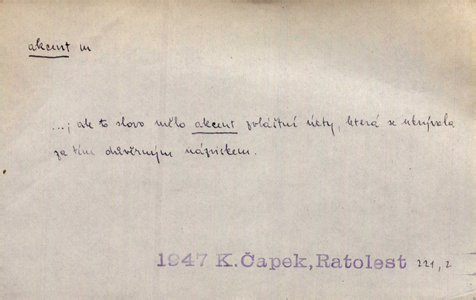 akcent m
...; ale to slovo mělo akcent zvláštní úcty, která se ukrývala
za tím důvěrným názvem.
1947 K. Čapek, Ratolest 221, 2